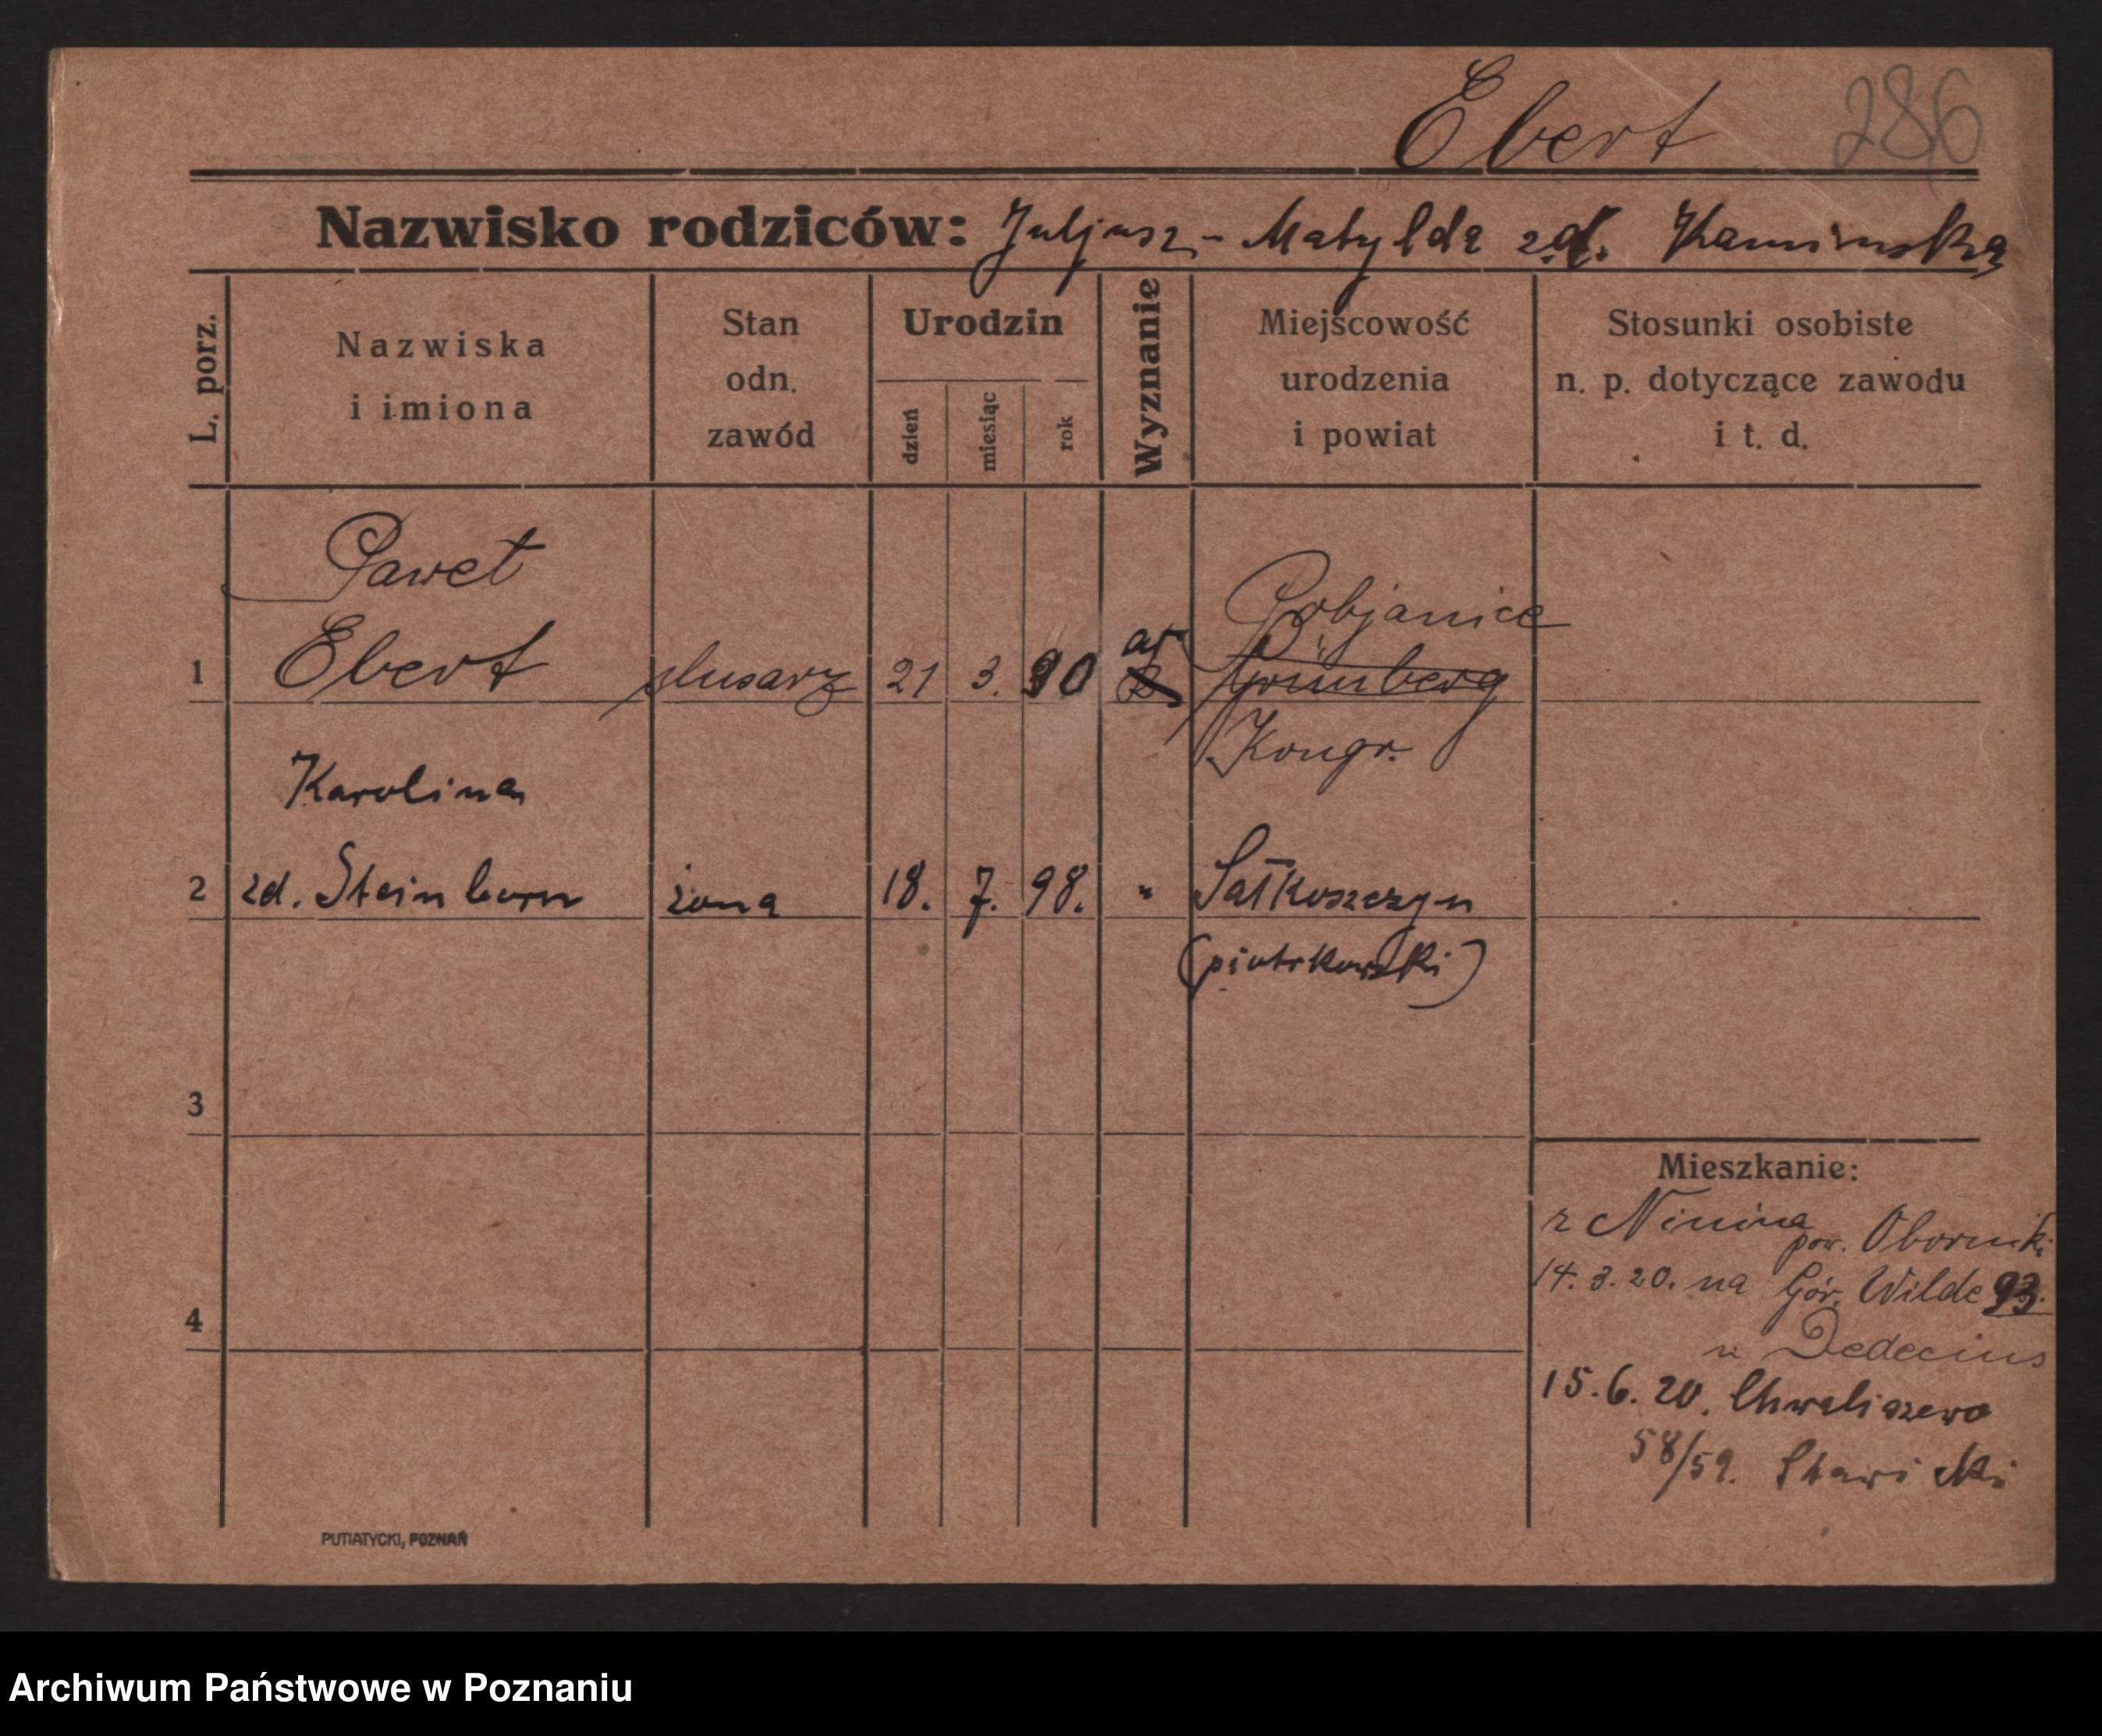 Ebert 286
Nazwisko rodziców: Juljusz - Matylda zd. Kaminska
L. porz.
Nazwiska
i imiona
Stan
odn.
zawód
Urodzin
dzień
miesiąc
rok
Wyznanie
Miejscowość
urodzenia
i powiat
Stosunki osobiste
n. p. dotyczące zawodu
i t. d.
Paweł
Pabjanice
1 Ebert ślusarz 21 3. 90 Grünberg
Kongr.
Karolina
2 zd. Steinborn żona 18. 7. 98. "
(piotrkowski)
3
4
Mieszkanie:
z Ninina pow. Oborniki
14. 3. 20. na Gór. Wilde 93.
u Dedecius
15. 6. 20. Chwaliszewo
58/59.
PUTIATYCKI, POZNAŃ
Archiwum Państwowe w Poznaniu